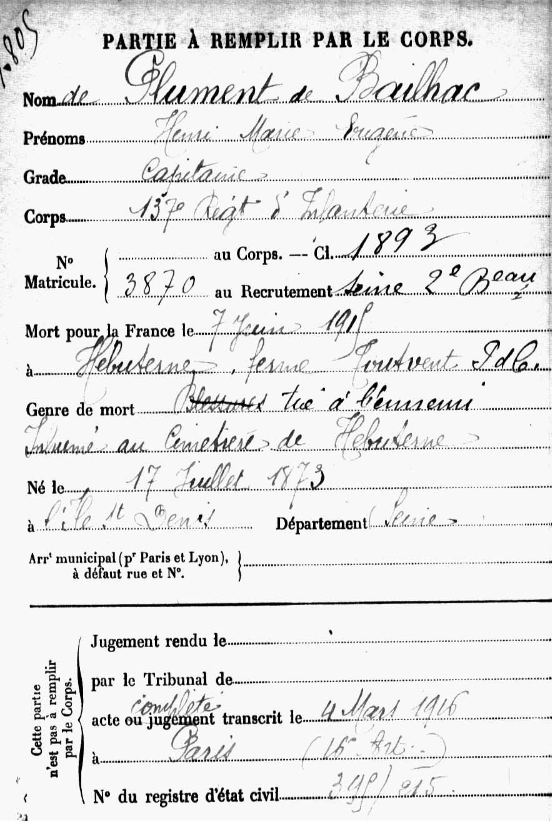 PARTIE À REMPLIR PAR LE CORPS.
Nom de Plument de Bailhac
Prénoms Henri Marie Eugène
Grade Capitaine
Corps 137e Régt d'Infanterie
N° Matricule. { au Corps. — Cl. 1893
3870 au Recrutement Seine 2e Beau
Mort pour la France le 7 Juin 1915
à Hébuterne, ferme Toutvent P.d.C.
Genre de mort Blessures tué à l'ennemi
Inhumé au Cimetière de Hébuterne
Né le 17 Juillet 1873
à l'Ile St Denis Département Seine
Arrt municipal (pr Paris et Lyon), à défaut rue et N°.
Cette partie n'est pas à remplir par le Corps.
Jugement rendu le
par le Tribunal de
complété
acte ou jugement transcrit le 4 Mars 1916
à Paris (16e Art.)
N° du registre d'état civil 395/815